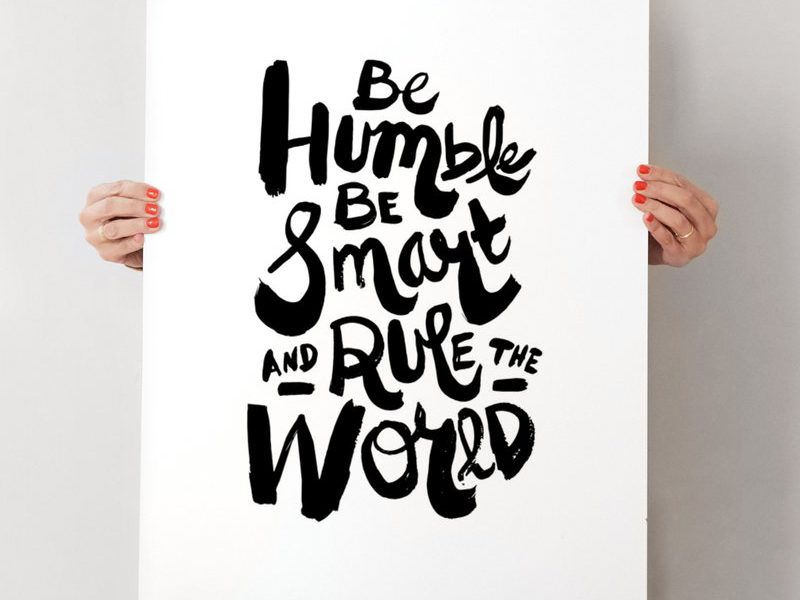 Be
Humble
BE
Smart
AND RULE THE
WORlD